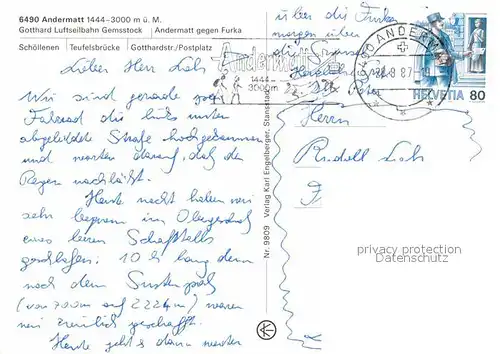 6490 Andermatt 1444–3000 m ü. M.
Gotthard Luftseilbahn Gemsstock Andermatt gegen Furka
Schöllenen Teufelsbrücke Gotthardstr./Postplatz
Lieber Herr Loh
Wir sind gerade per
Fahrrad die links unten
abgebildete Straße hochgekommen
und warten darauf, daß der
Regen nachläßt.
Heute nacht haben wir
sehr bequem im Obergeschoß
eines leeren Schafstalls
geschlafen. 10 h lang denn
nach dem Sustenpaß
(von 700m auf 2224m) waren
wir ziemlich geschafft.
Heute geht's dann weiter
über die Furka
morgen über
die
Peter
Andermatt
1444–
3000m
6490 ANDERMATT
HELVETIA 80
Nr. 9809 Verlag Karl Engelberger, Stansstad
Herrn
Rudolf Loh
privacy protection
Datenschutz